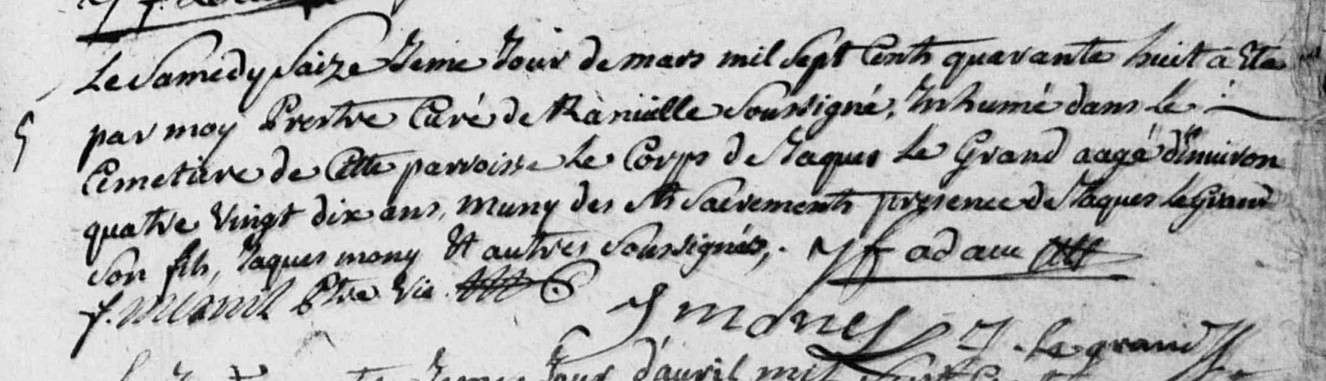 Le Samedy Saize Ieme Jour de mars mil Sept Cents quarante huit a Eté
par moy Prestre Curé de Raniville Soussigné, Inhumé dans le
Cimetiere de Cette parroisse Le Corps de Jaques Le Grand aagé d'Enuiron
quatre Vingt dix ans, muny des Sts Sacrements presence de Jaques Le Grand
son fils, Jaques mony Et autres Soussignés,. J f adam
f. Ptre Vic
J mony J. Le grand
Jour d'auril mil